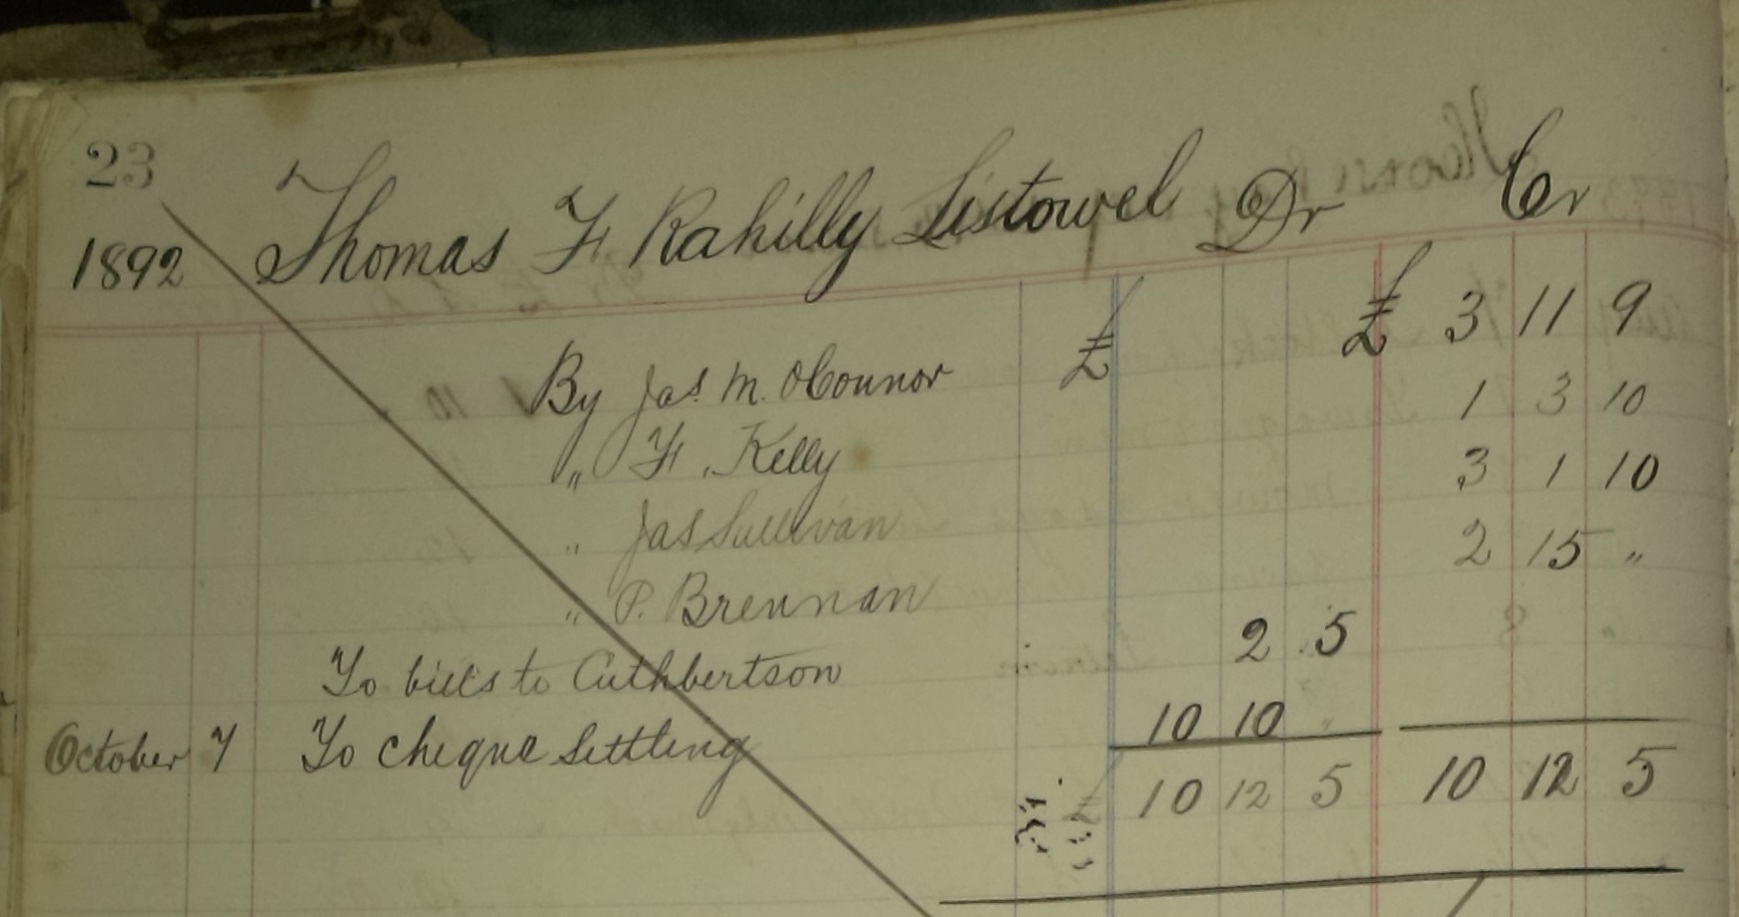 23
1892 Thomas F Rahilly Listowel Dr Cr
By Jas. M. OConnor £ £ 3 11 9
" F. Kelly 1 3 10
" Jas Sullivan 3 1 10
" P. Brennan 2 15 "
To bills to Cuthbertson 2 5
October 7 To cheque settling 10 10 "
£ 10 12 5 10 12 5